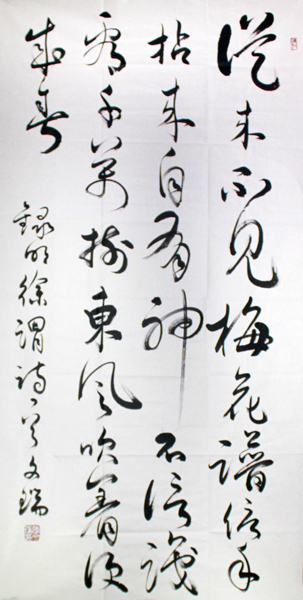 從来不見梅花譜信手
拈来自有神不信試
看千萬樹東風吹著便
成春
錄明徐渭詩一首文瑞